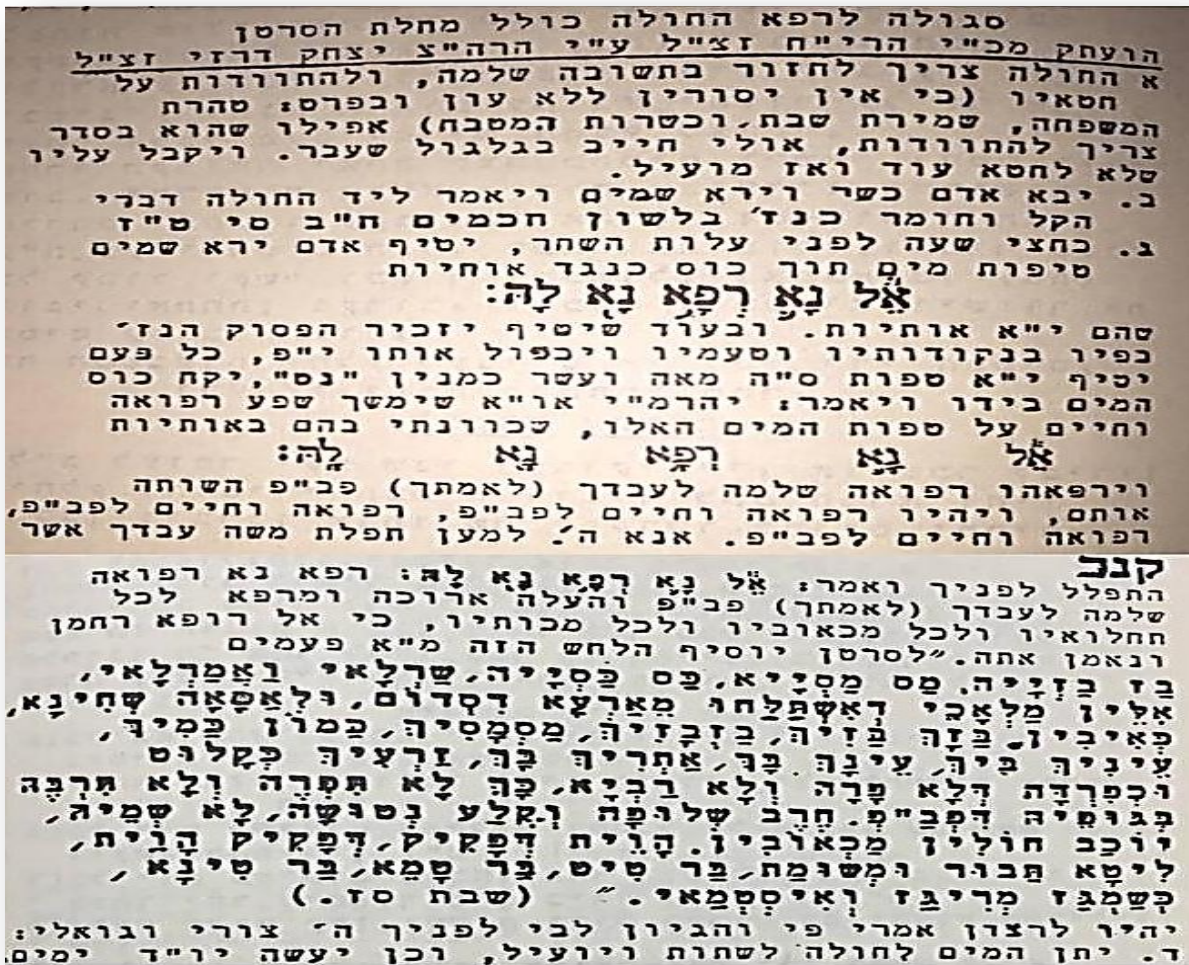 סגולה לרפא החולה כולל מחלת הסרטן
הועתק מכ"י הרי"ח זצ"ל ע"י הרה"צ יצחק דרזי זצ"ל
א החולה צריך לחזור בתשובה שלמה, ולהתוודות על
חטאיו (כי אין יסורין ללא עון ובפרט: טהרת
המשפחה, שמירת שבת, וכשרות המטבח) אפילו שהוא בסדר
צריך להתוודות, אולי חייב בגלגול שעבר. ויקבל עליו
שלא לחטא עוד ואז מועיל.
ב. יבא אדם כשר וירא שמים ויאמר ליד החולה דברי
הקל וחומר כנז' בלשון חכמים ח"ב סי ט"ז
ג. כחצי שעה לפני עלות השחר, יטיף אדם ירא שמים
טיפות מים תוך כוס כנגד אותיות
אֵל נָא רְפָא נָא לָהּ:
שהם י"א אותיות. ובעוד שיטיף יזכיר הפסוק הנז'
בפיו בנקודותיו וטעמיו ויכפול אותו י"פ, כל פעם
יטיף י"א טפות ס"ה מאה ועשר כמנין "נס", יקח כוס
המים בידו ויאמר: יהרמ"י או"א שימשך שפע רפואה
וחיים על טפות המים האלו, שכוונתי בהם באותיות
אֵל נָא רְפָא נָא לָהּ:
וירפאהו רפואה שלמה לעבדך (לאמתך) פב"פ השותה
אותם, ויהיו רפואה וחיים לפב"פ, רפואה וחיים לפב"פ,
רפואה וחיים לפב"פ. אנא ה'. למען תפלת משה עבדך אשר
קנב
התפלל לפניך ואמר: אֵל נָא רְפָא נָא לָהּ: רפא נא רפואה
שלמה לעבדך (לאמתך) פב"פ והעלה ארוכה ומרפא לכל
תחלואיו ולכל מכאוביו ולכל מכותיו, כי אל רופא רחמן
ונאמן אתה. "לסרטן יוסיף הלחש הזה מ"א פעמים
בַּז בַּזְיָיה, מַס מַסְיָיא, כַּס כַּסְיָיה, שַׁרְלָאי וַאֲמַרְלָאי,
אֵלִין מַלְאֲכֵי דְאִשְׁתַּלַחוּ מֵאַרְעָא דִסְדוֹם, וּלְאַסָּאָה שְׁחִינָא,
כְּאִיבִין. בַּזָךְ בַּזִיךְ, בַּזְבָּזִיךְ, מַסְמָסִיךְ, כַּמוֹן כַּמִיךְ,
עֵינִיךְ בִּיךְ, עֵינָךְ בָּךְ, אַתְרִיךְ בָּךְ, זַרְעִיךְ כְּקָלוּט
וּכְפִרְדָּה דְּלָא פָּרָה וְלָא רַבְיָא, כָּךְ לָא תִּפְרֶה וְלָא תִּרְבֶּה
בְּגוּפֵיהּ דִפְבַּ"פּ. חֶרֶב שְׁלוּפָה וְקֶלַע נְטוּשָׁה, לָא שְׁמֵיהּ,
יוֹכַב חוֹלִין מַכְאוֹבִין. הָוֵית דְּפָקִיק, דְּפָקִיק הָוֵית,
לִיטָא תַּבוּר וּמְשׁוּמַת, בַּר טִיט, בַּר טָמֵא, בַּר טִינָא,
כְּשַׁמְגַּז מְרִיגַז וְאִיסְטְמַאי." (שבת סז.)
יהיו לרצון אמרי פי והגיון לבי לפניך ה' צורי וגואלי:
ד. יתן המים לחולה לשתות ויועיל, וכן יעשה יו"ד ימים.